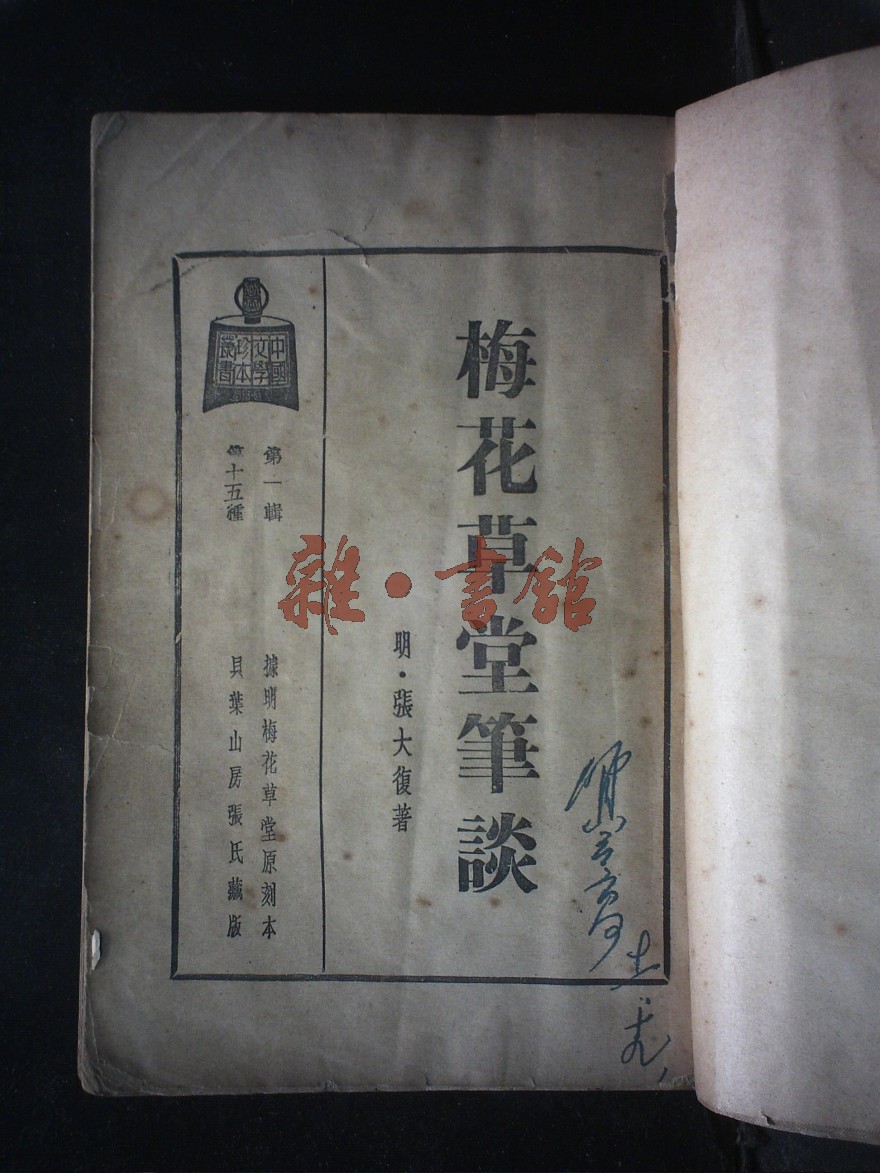 梅花草堂筆談
明·張大復著
中國
文學
珍本
叢書
第一輯
第十五種
據明梅花草堂原刻本
貝葉山房張氏藏版
雜·書館